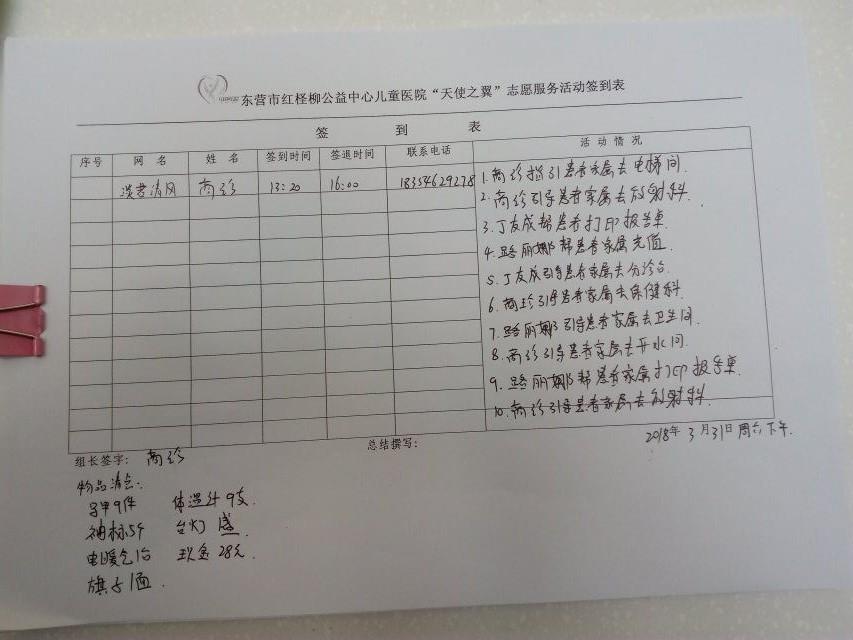 东营市红柽柳公益中心儿童医院“天使之翼”志愿服务活动签到表
签 到 表
序号 网 名 姓 名 签到时间 签退时间 联系电话 活 动 情 况
淡若清风 商珍 13:20 16:00 18354629278
1. 商珍指引患者家属去电梯间.
2. 商珍引导患者家属去放射科.
3. 丁友成帮患者打印报告单.
4. 路丽娜帮患者家属充值.
5. 丁友成引导患者家属去分诊台.
6. 商珍引导患者家属去保健科.
7. 路丽娜引导患者家属去卫生间.
8. 商珍引导患者家属去开水间.
9. 路丽娜帮患者家属打印报告单.
10. 商珍引导患者家属去放射科.
组长签字: 商珍
总结撰写:
2018年3月31日周六下午.
物品清点:
马甲9件 体温计9支.
袖标5个 台灯
电暖气1台 现金28元.
旗子1面.